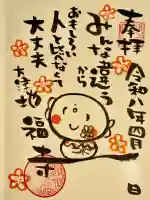 奉拝
令和八年四月一日
みんな違う
から
おもしろい
人と比べなくて
大丈夫
お寺
地福寺